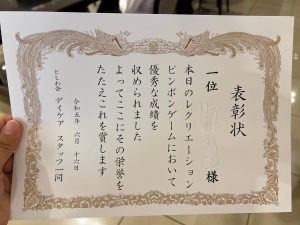 表彰状
一位 様
本日のレクリエーション
ピンポンゲームにおいて
優秀な成績を
収められました
よってここにその栄誉を
たたえこれを賞します
令和五年 六月 十六日
デイケア スタッフ一同